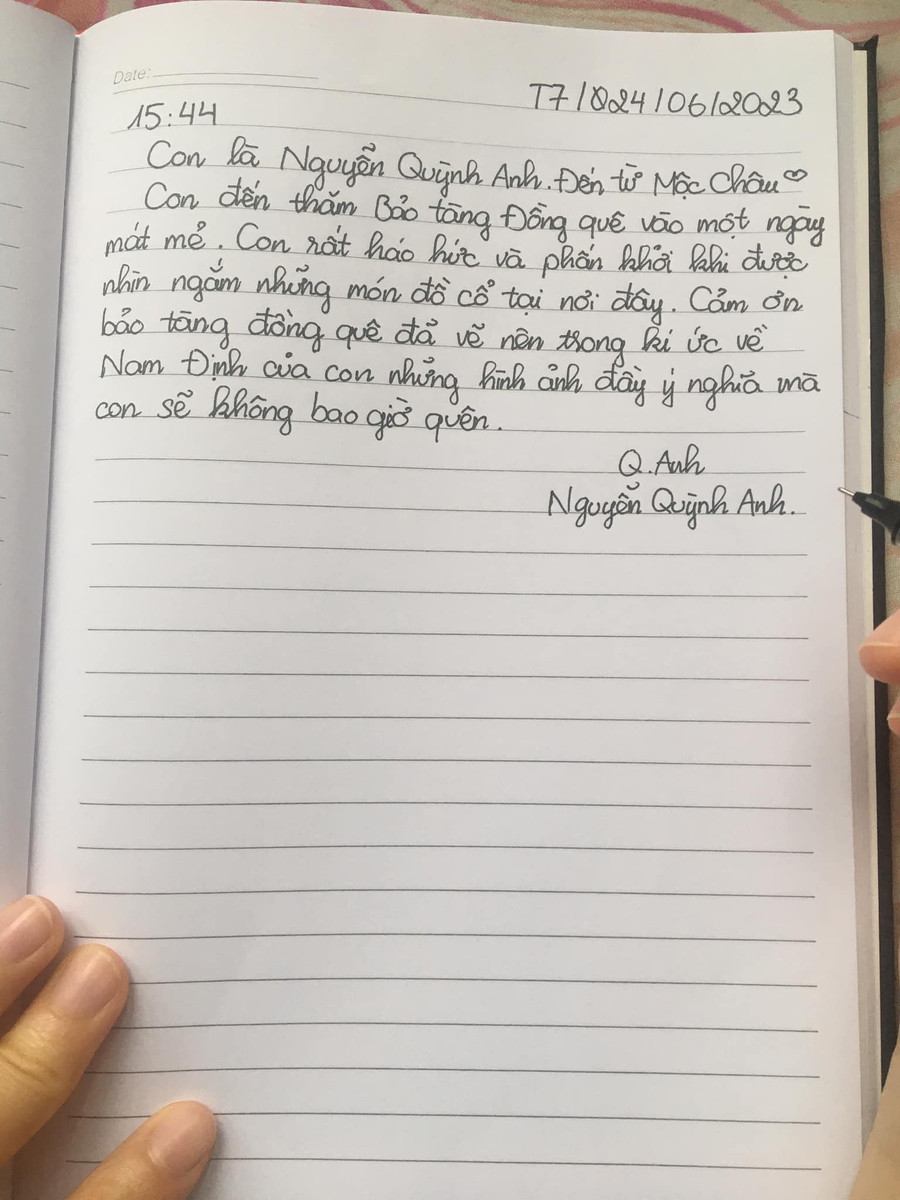 Date:
T7/024/06/2023
15:44
Con là Nguyễn Quỳnh Anh. Đến từ Mộc Châu♡
Con đến thăm Bảo tàng Đồng quê vào một ngày
mát mẻ. Con rất háo hức và phấn khởi khi được
nhìn ngắm những món đồ cổ tại nơi đây. Cảm ơn
bảo tàng đồng quê đã vẽ nên trong kí ức về
Nam Định của con những hình ảnh đầy ý nghĩa mà
con sẽ không bao giờ quên.
Q.Anh
Nguyễn Quỳnh Anh.